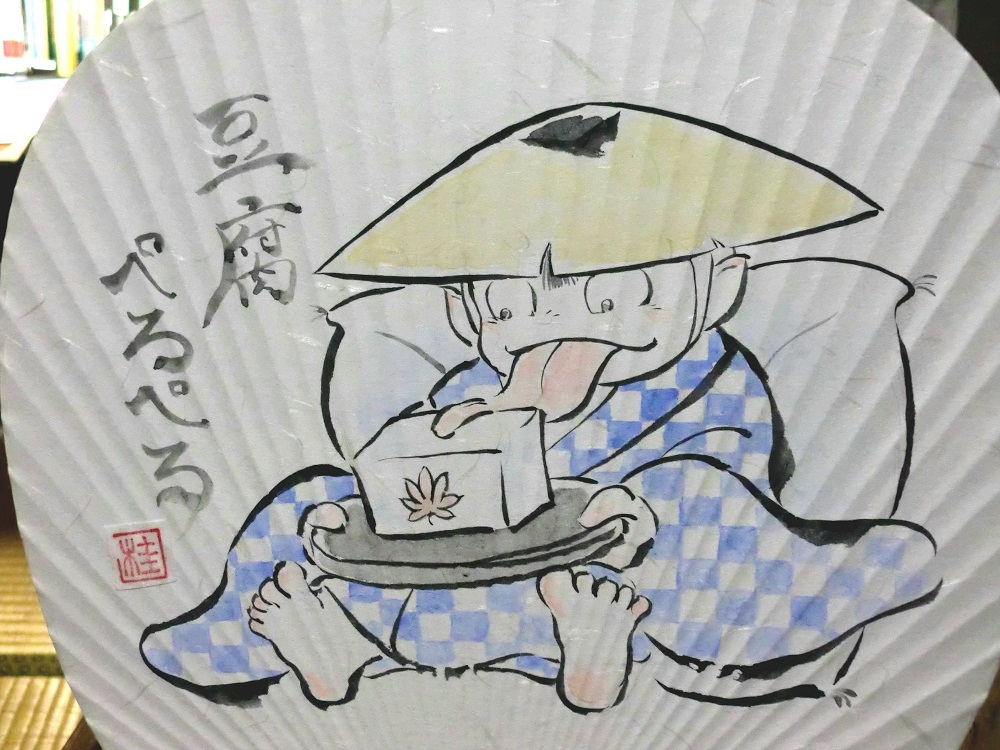 豆腐
ぺろぺろ
桂